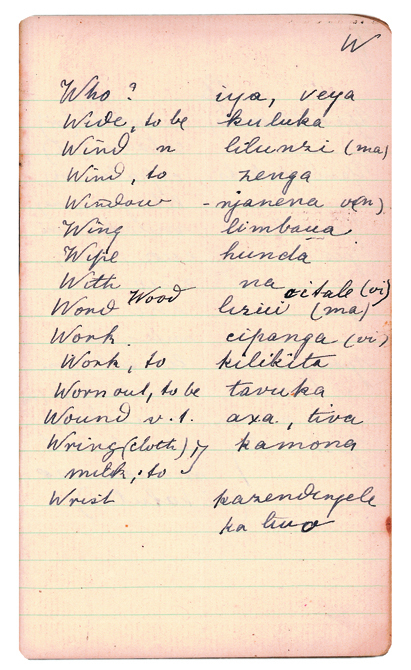 W
Who? iya, veya
Wide, to be kuluka
Wind n lilunzi (ma)
Wind, to zenga
Window - njanena v(n)
Wing limbava
Wipe hunda
With na
Wood citale (vi)
Word liziii (ma)
Work cipanga (vi)
Work, to kilikita
Worn out, to be tavuka
Wound v.t. axa, tiva
Wring (cloth) kamona
milk, to
Wrist kazendengele
ka